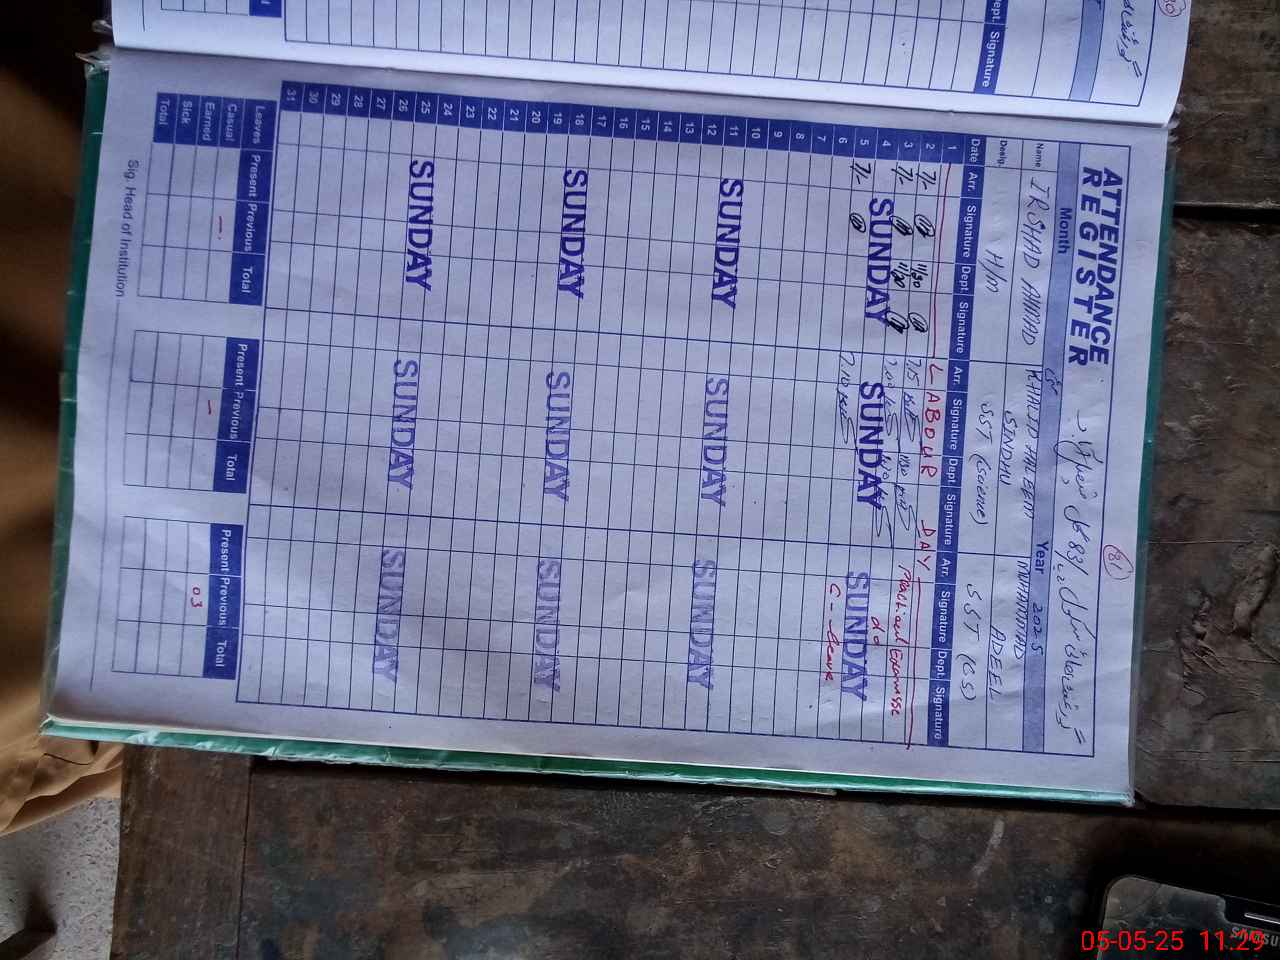 Dept.
Signature
ATTENDANCE
REGISTER
181
Month
Year 2025
Name
IRSHAD AHMAD
KHALID HALEEM
SINDHU
MUHAMMAD
ADEEL
Desig.
H/M
SST (Science)
SST (CS)
Date Arr. Signature Dept. Signature Arr. Signature Dept. Signature Arr. Signature Dept. Signature
1 LABOUR DAY
2 7/- 11/30 7.15 11.30 Practical
3 7/- 11/30 7.00 do
4 SUNDAY SUNDAY SUNDAY
5 7/- 7.10 C-leave
6
7
8
9
10
11 SUNDAY SUNDAY SUNDAY
12
13
14
15
16
17
18 SUNDAY SUNDAY SUNDAY
19
20
21
22
23
24
25 SUNDAY SUNDAY SUNDAY
26
27
28
29
30
31
Leaves Present Previous Total Present Previous Total Present Previous Total
Casual
Earned — — 03
Sick
Total
Sig. Head of Institution
SAMSU
05-05-25 11:29